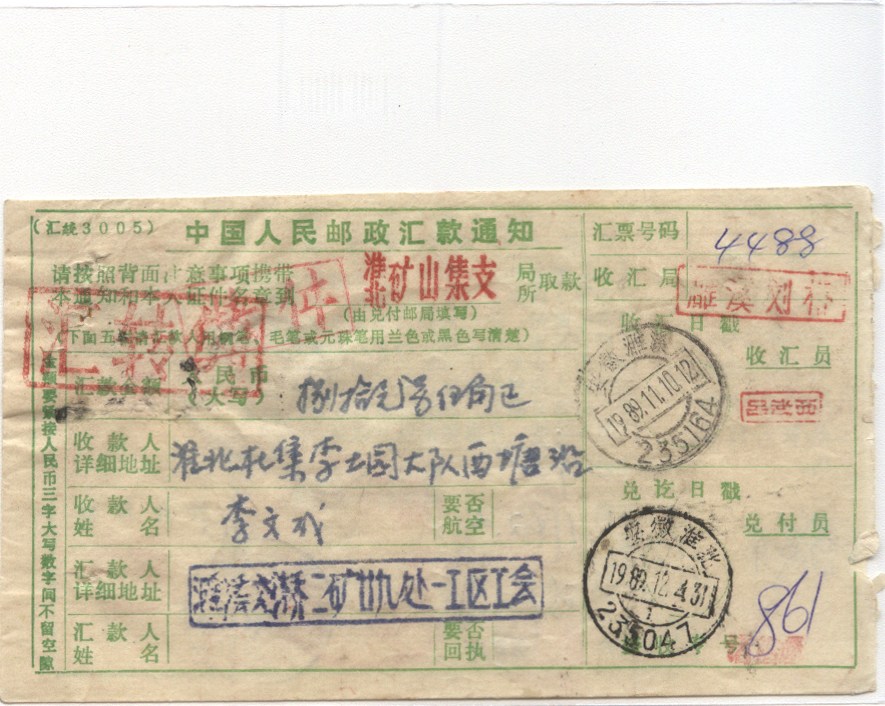 (汇统3005)
中国人民邮政汇款通知
请按照背面注意事项携带
本通知和本人证件名章到
淮北矿山集支
局
所
取款
(由兑付邮局填写)
毛笔或元珠笔用兰色或黑色写清楚)
金额要紧接人民币三字大写数字间不留空隙
汇款金额
人民币
(大写)
捌拾元
收款人
详细地址
淮北杜集李土园大队西塘沿
收款人
姓名
李文
要否
航空
汇款人
详细地址
二矿廿九处一工区工会
汇款人
姓名
要否
回执
汇票号码
4488
收汇局
濉溪刘桥
收汇日戳
安徽濉溪
1989.11.10.12
23516A
收汇员
兑讫日戳
安徽淮北
1989.12.4.31
1
235047
兑付员
号
861